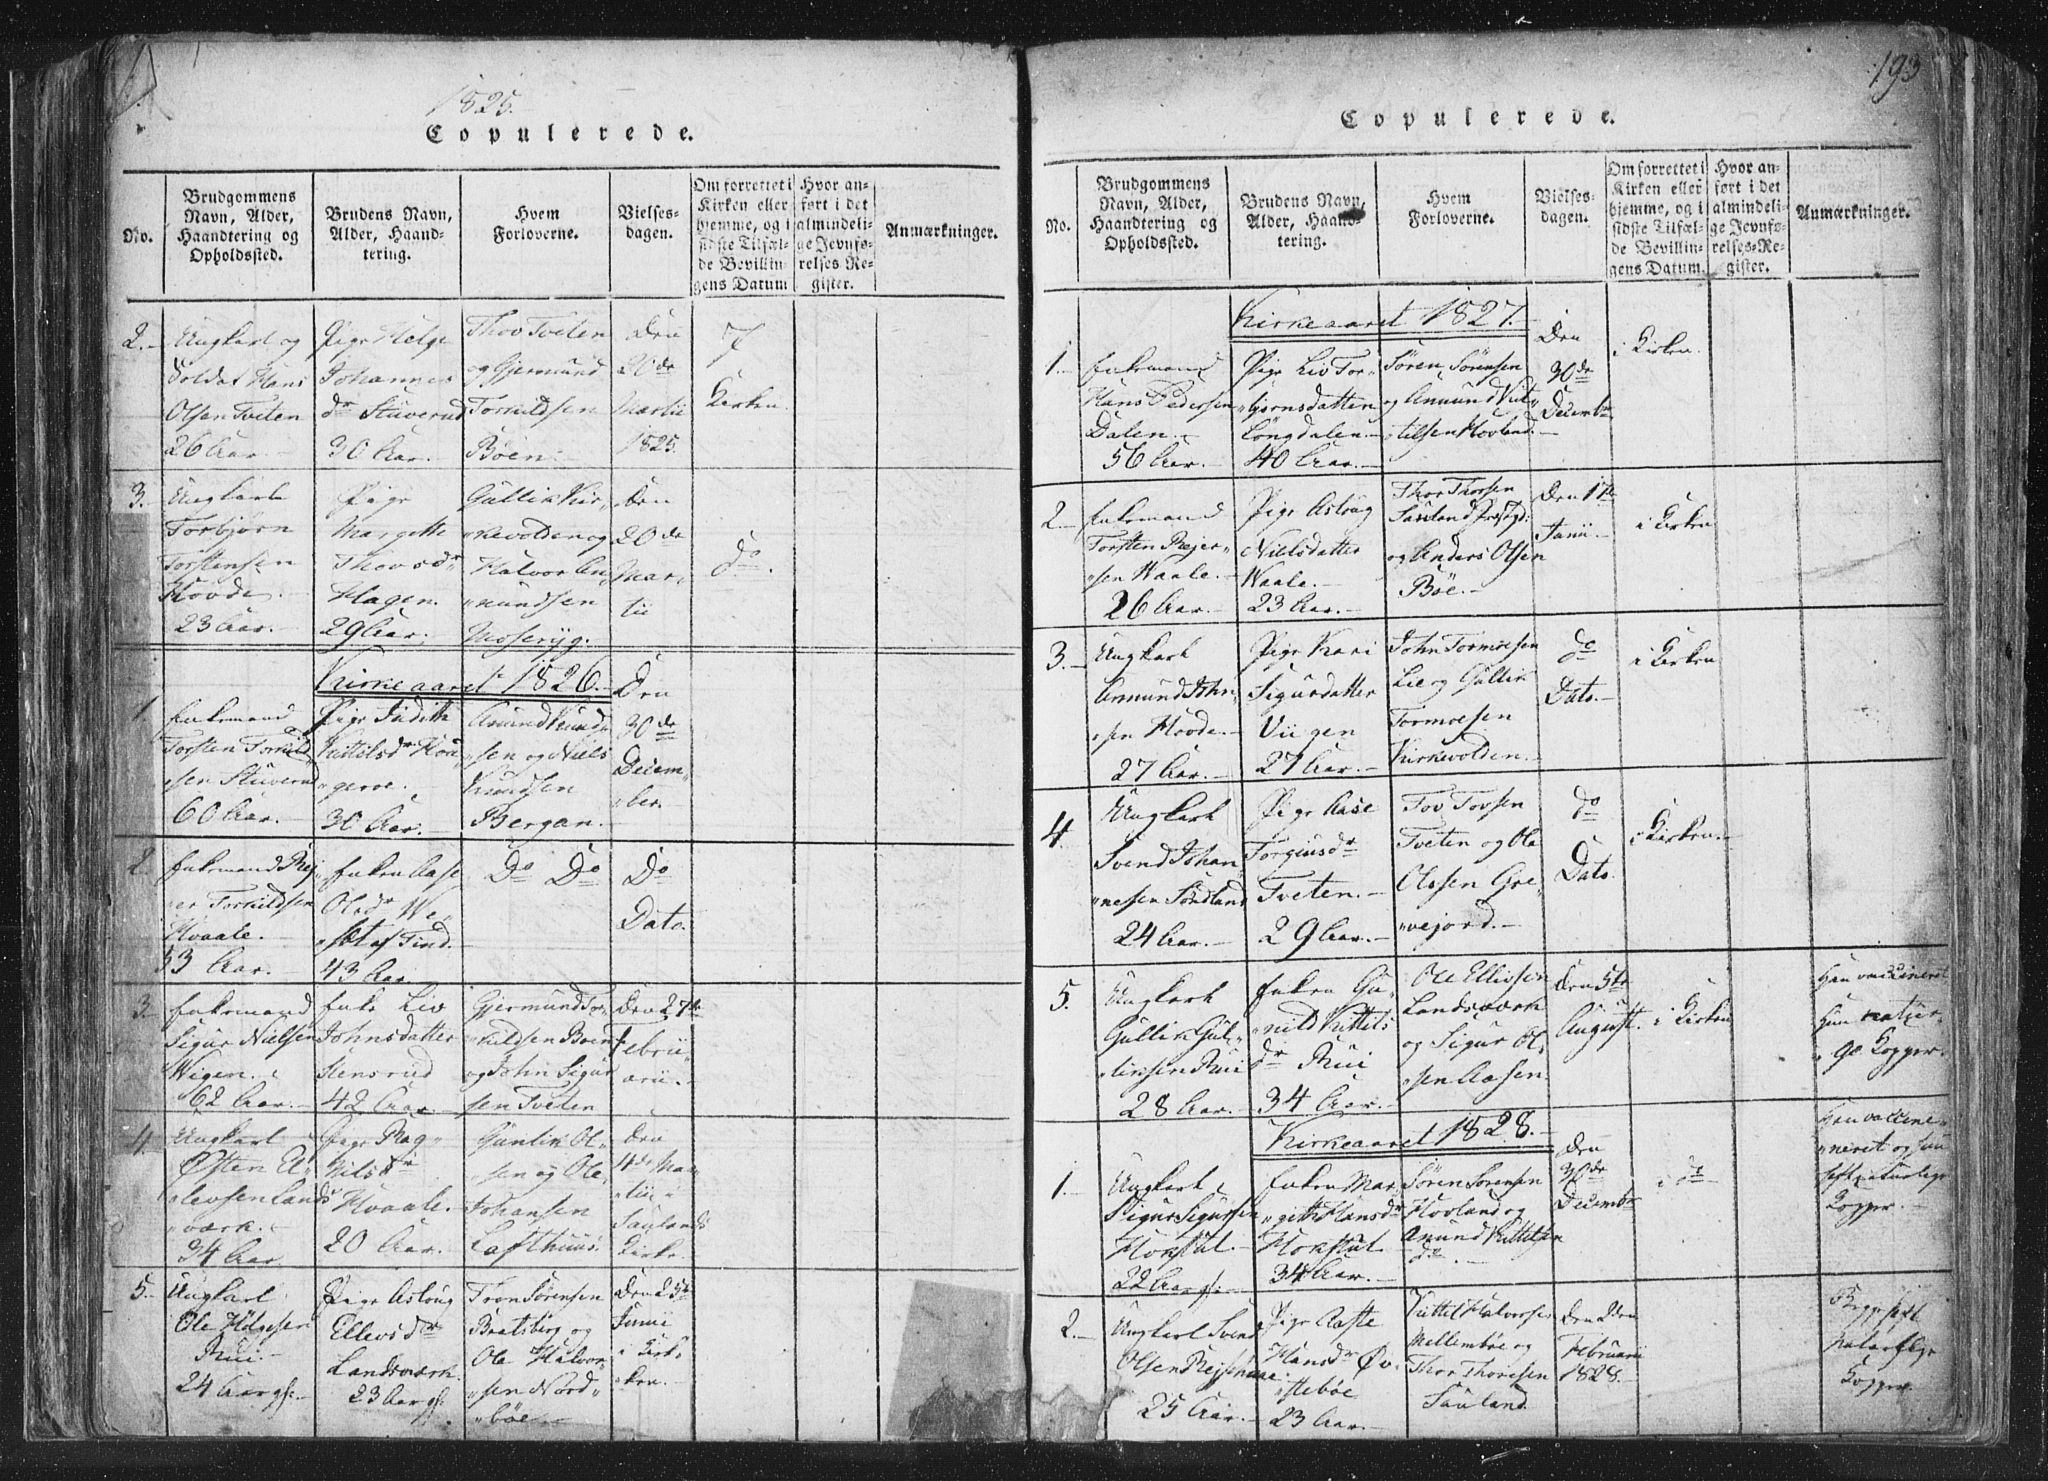 1825.
Copulerede.
No.
Brudgommens
Navn, Alder,
Haandtering og
Opholdssted.
Brudens Navn,
Alder, Haand-
tering.
Hvem
Forloverne.
Vielses-
dagen.
Om forrettet i
Kirken eller
hjemme, og i
sidste Tilfæl-
de Bevillin-
gens Datum
Hvor an-
ført i det
almindeli-
ge Jevnfø-
relses-Re-
gister.
Anmærkninger.
2.
Ungkarl og
Soldat Hans
Olsen Tveten
26 Aar.
Pige Helge
Johannes
dr Stuverud
30 Aar.
Thov Tveten
og Gjermund
Torkildsen
Böen.
Den
20de
Martii
1825.
Kirken
3.
Ungkarl
Torbjörn
Torstensen
Hovde.
23 Aar.
Pige
Margethe
Thovsdr
Hagen.
29 Aar.
Gullik Kir-
kevolden og
Halvor An-
mundsen
Moseryg.
Den
20de
Mar-
tii
do.
Kirkeaaret 1826.
1
Enkemand
Torsten Torkild
sen Stuverud
60 Aar.
Pige Judith
Kittilsdr Hou
gerve.
30 Aar.
Amund Knud-
sen og Niels
Knudsen
Bergan.
Den
30de
Decem-
ber.
2
Enkemand Rej-
er Torkildsen
Hvaale.
53 Aar.
Enken Aase
Olsdr We-
af Tind.
43 Aar.
Do Do
Do
Dato.
3.
Enkemand
Sigur Nielsen
Wigen.
62 Aar.
Enke Liv
Johnsdatter
Stensrud
42 Aar.
Gjermund Tor-
kildsen Boen
og John Sigur
sen Tveten
Den 27de
Febru-
arii.
4.
Ungkarl
Østen El-
levsen Lands
værk.
34 Aar
Pige Rag-
nilsdr
Hvaale.
20 Aar.
Gunlik Ol-
sen og Ole
Johansen
Lofthuus.
Den
4de Mar-
tii
Saulands
Kirke
5.
Ungkarl
Ole Helgesen
Rui.
24 Aar gl.
Pige Asloug
Ellevsdr
Landsværk
23 Aar gl.
Tron Sörensen
Bratsberg og
Ole Halvor-
sen Nord-
böe
Den 25de
Junii
i Kir-
ken.
193
Copulerede.
No.
Brudgommens
Navn, Alder,
Haandtering og
Opholdssted.
Brudens Navn,
Alder, Haand-
tering.
Hvem
Forloverne.
Vielses-
dagen.
Om forrettet i
Kirken eller
hjemme, og i
sidste Tilfæl-
de Bevillin-
gens Datum.
Hvor an-
ført i det
almindeli-
ge Jevnfø-
relses-Re-
gister.
Anmærkninger.
Kirkeaaret 1827.
1.
Enkemand
Hans Pedersen
Dalen.
56 Aar.
Pige Liv Tor-
björnsdatter
Löngdalen.
40 Aar.
Sören Sörensen
og Amund Kit-
tilsen Hovland.
Den
30de
Decembr
i Kirken.
2.
Enkemand
Torsten Rejer-
sen Waale.
26 Aar.
Pige Asloug
Nielsdatter
Waale.
23 Aar.
Thor Thorsen
Sauland
og Anders Olsen
Böe.
Den 1te
Junii.
i Kirken
3.
Ungkarl
Amund John-
sen Hovde.
27 Aar.
Pige Kari
Sigursdatter
Viigen
27 Aar.
John Tormoesen
Lie og Gullik
Tormoesen
Kirkevolden.
do
Dato.
i Kirken
4.
Ungkarl
Svend Johan-
nesen Söndland
24 Aar.
Pige Aase
Torgiusdr
Tveten.
29 Aar.
Tov Tovsen
Tveten og Ole
Olsen Gre-
vejord.
do
Dato.
i Kirken.
5.
Ungkarl
Gullik Gul-
liksen Rui
28 Aar.
Enken Gu-
nild Kittils
dr Rui
34 Aar.
Ole Ellefsen
Landsværk
og Sigur Ol-
sen Aasen.
Den 5te
August.
i Kirken
Han vaccineret
Hun natur-
lige Kopper.
Kirkeaaret 1828.
1.
Ungkarl
Sigur Sigursen
Hokstul
22 Aar gl.
Enken Mar-
gith Hansdr
Hokstul
34 Aar.
Sören Sörensen
Hovland og
Amund Kittelsen
do.
Den
30de
Decembr
i do
Han vaccine-
neret og hun
havt naturlige
Kopper.
2.
Ungkarl Svend
Olsen
25 Aar.
Pige Aaste
Hansdr Øv-
stebøe
23 Aar.
Kittel Halvorsen
Mellembøe og
Thor Thoresen
Sauland
Den 2den
Februarii
1828.
Begge havt
naturlige
Kopper.